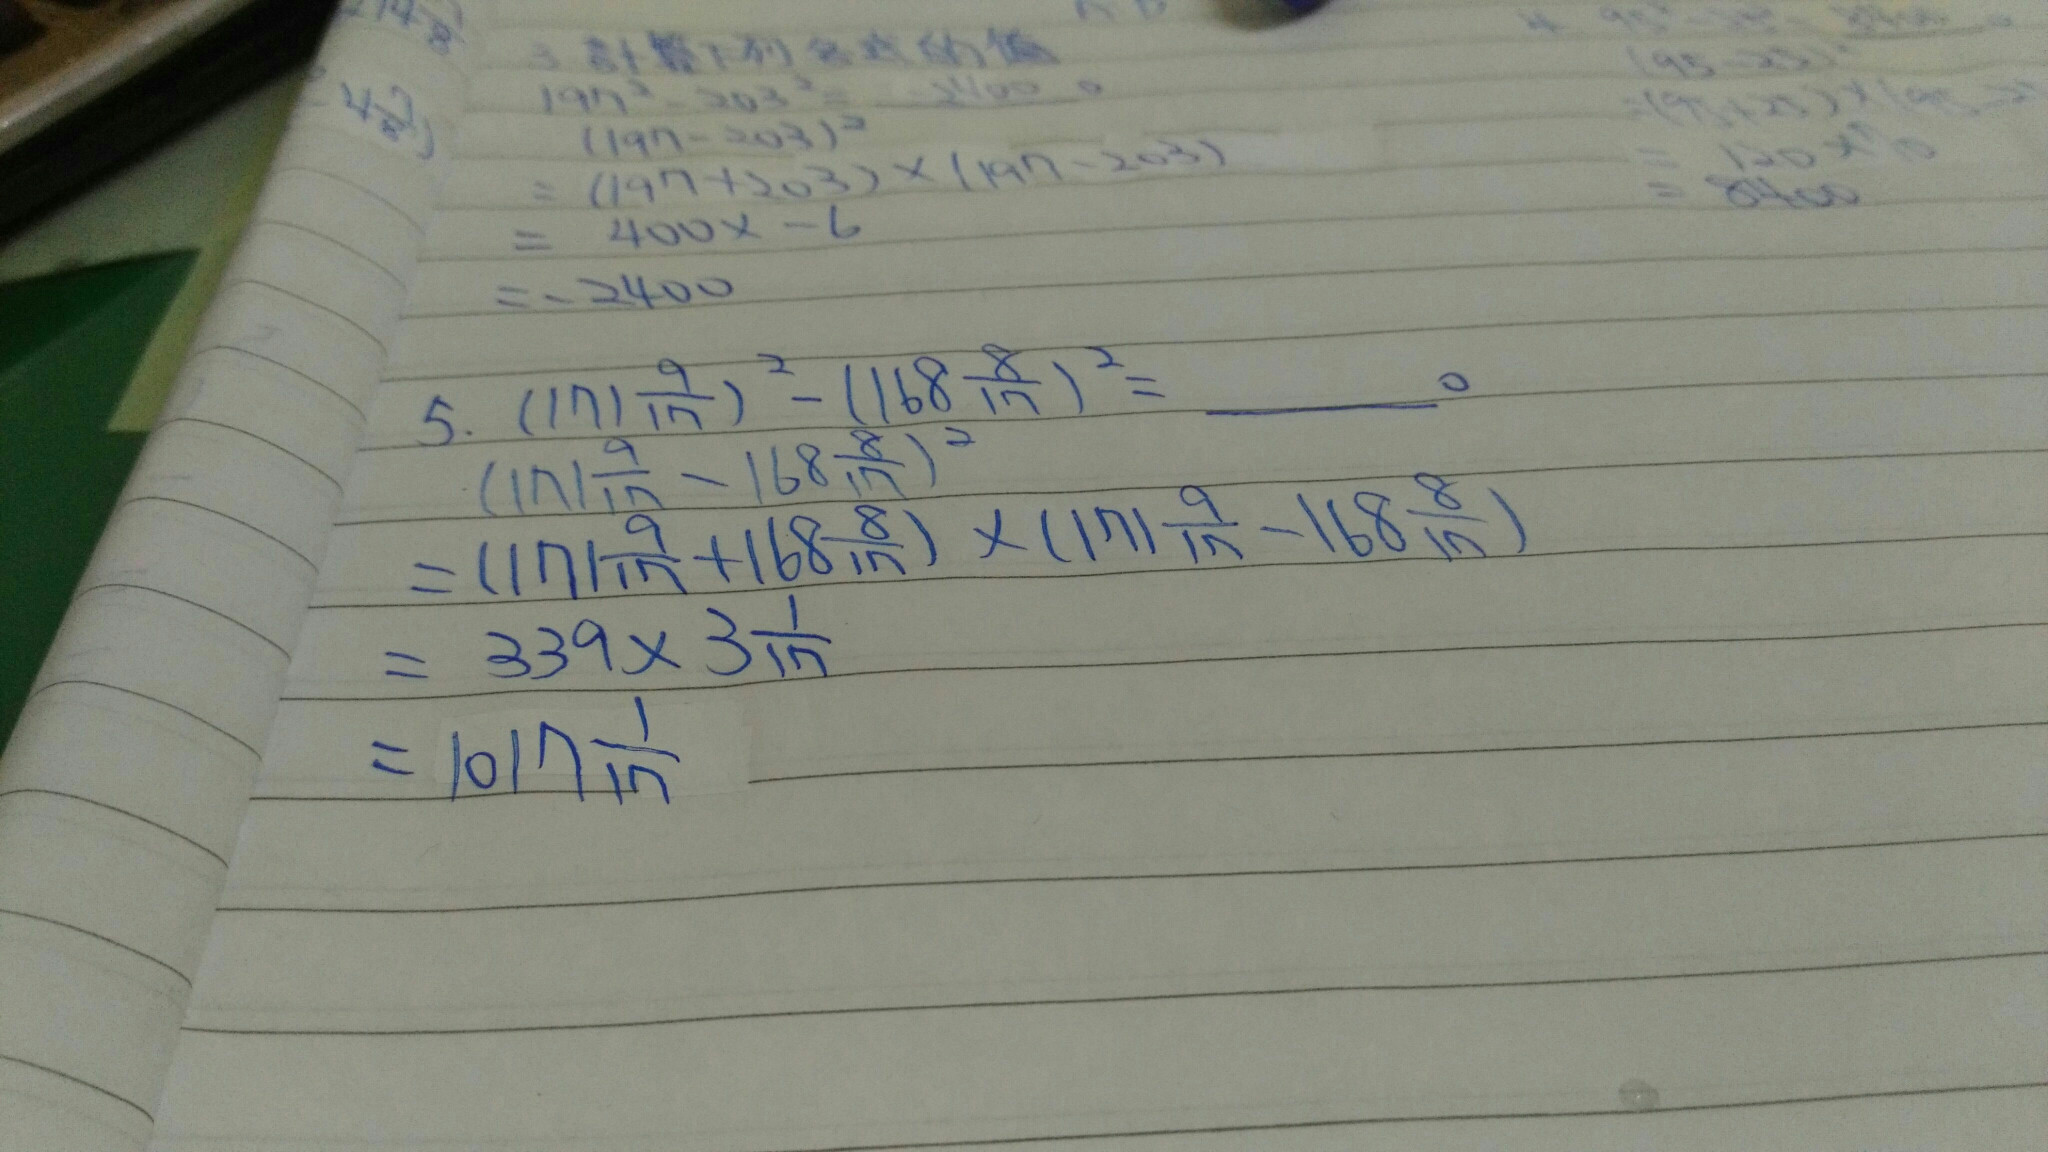 3. 計算下列各式的值
197² - 203² = -2400。
(197-203)²
= (197+203)×(197-203)
= 400×-6
= -2400
(95-25)²
= 120×70
= 8400
5. (171 9/17)² - (168 8/17)² = ______。
(171 9/17 - 168 8/17)²
= (171 9/17 + 168 8/17) × (171 9/17 - 168 8/17)
= 339 × 3 1/17
= 1017 1/17